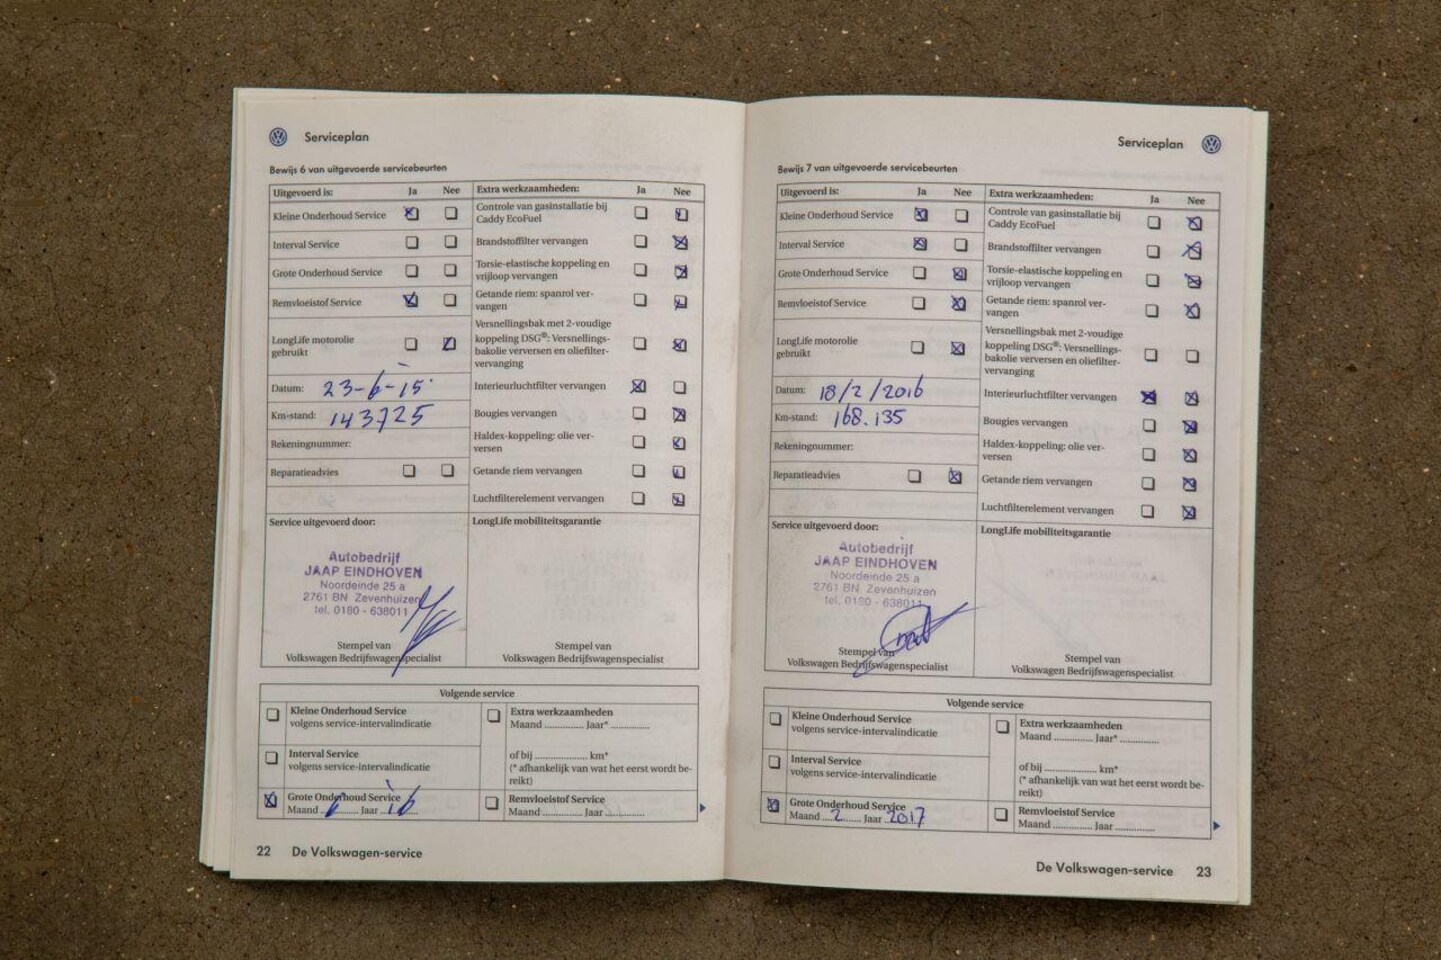 Serviceplan
Bewijs 6 van uitgevoerde servicebeurten
Uitgevoerd is: Ja Nee
Kleine Onderhoud Service
Interval Service
Grote Onderhoud Service
Remvloeistof Service
LongLife motorolie
gebruikt
Datum: 23-6-15
Km-stand: 143725
Rekeningnummer:
Reparatieadvies
Extra werkzaamheden: Ja Nee
Controle van gasinstallatie bij
Caddy EcoFuel
Brandstoffilter vervangen
Torsie-elastische koppeling en
vrijloop vervangen
Getande riem: spanrol ver-
vangen
Versnellingsbak met 2-voudige
koppeling DSG®: Versnellings-
bakolie verversen en oliefilter-
vervanging
Interieurluchtfilter vervangen
Bougies vervangen
Haldex-koppeling: olie ver-
versen
Getande riem vervangen
Luchtfilterelement vervangen
Service uitgevoerd door:
Autobedrijf
JAAP EINDHOVEN
Noordeinde 25 a
2761 BN Zevenhuizen
tel. 0180 - 638011
Stempel van
Volkswagen Bedrijfswagenspecialist
LongLife mobiliteitsgarantie
Stempel van
Volkswagen Bedrijfswagenspecialist
Volgende service
Kleine Onderhoud Service
volgens service-intervalindicatie
Interval Service
volgens service-intervalindicatie
Grote Onderhoud Service
Maand ........ Jaar 16
Extra werkzaamheden
Maand ............ Jaar* ............
of bij ................ km*
(* afhankelijk van wat het eerst wordt be-
reikt)
Remvloeistof Service
Maand ............ Jaar ............
22 De Volkswagen-service
Serviceplan
Bewijs 7 van uitgevoerde servicebeurten
Uitgevoerd is: Ja Nee
Kleine Onderhoud Service
Interval Service
Grote Onderhoud Service
Remvloeistof Service
LongLife motorolie
gebruikt
Datum: 18/2/2016
Km-stand: 168.135
Rekeningnummer:
Reparatieadvies
Extra werkzaamheden: Ja Nee
Controle van gasinstallatie bij
Caddy EcoFuel
Brandstoffilter vervangen
Torsie-elastische koppeling en
vrijloop vervangen
Getande riem: spanrol ver-
vangen
Versnellingsbak met 2-voudige
koppeling DSG®: Versnellings-
bakolie verversen en oliefilter-
vervanging
Interieurluchtfilter vervangen
Bougies vervangen
Haldex-koppeling: olie ver-
versen
Getande riem vervangen
Luchtfilterelement vervangen
Service uitgevoerd door:
Autobedrijf
JAAP EINDHOVEN
Noordeinde 25 a
2761 BN Zevenhuizen
tel. 0180 - 638011
Stempel van
Volkswagen Bedrijfswagenspecialist
LongLife mobiliteitsgarantie
Stempel van
Volkswagen Bedrijfswagenspecialist
Volgende service
Kleine Onderhoud Service
volgens service-intervalindicatie
Interval Service
volgens service-intervalindicatie
Grote Onderhoud Service
Maand 2 Jaar 2017
Extra werkzaamheden
Maand ............ Jaar* ............
of bij ................ km*
(* afhankelijk van wat het eerst wordt be-
reikt)
Remvloeistof Service
Maand ............ Jaar ............
De Volkswagen-service 23